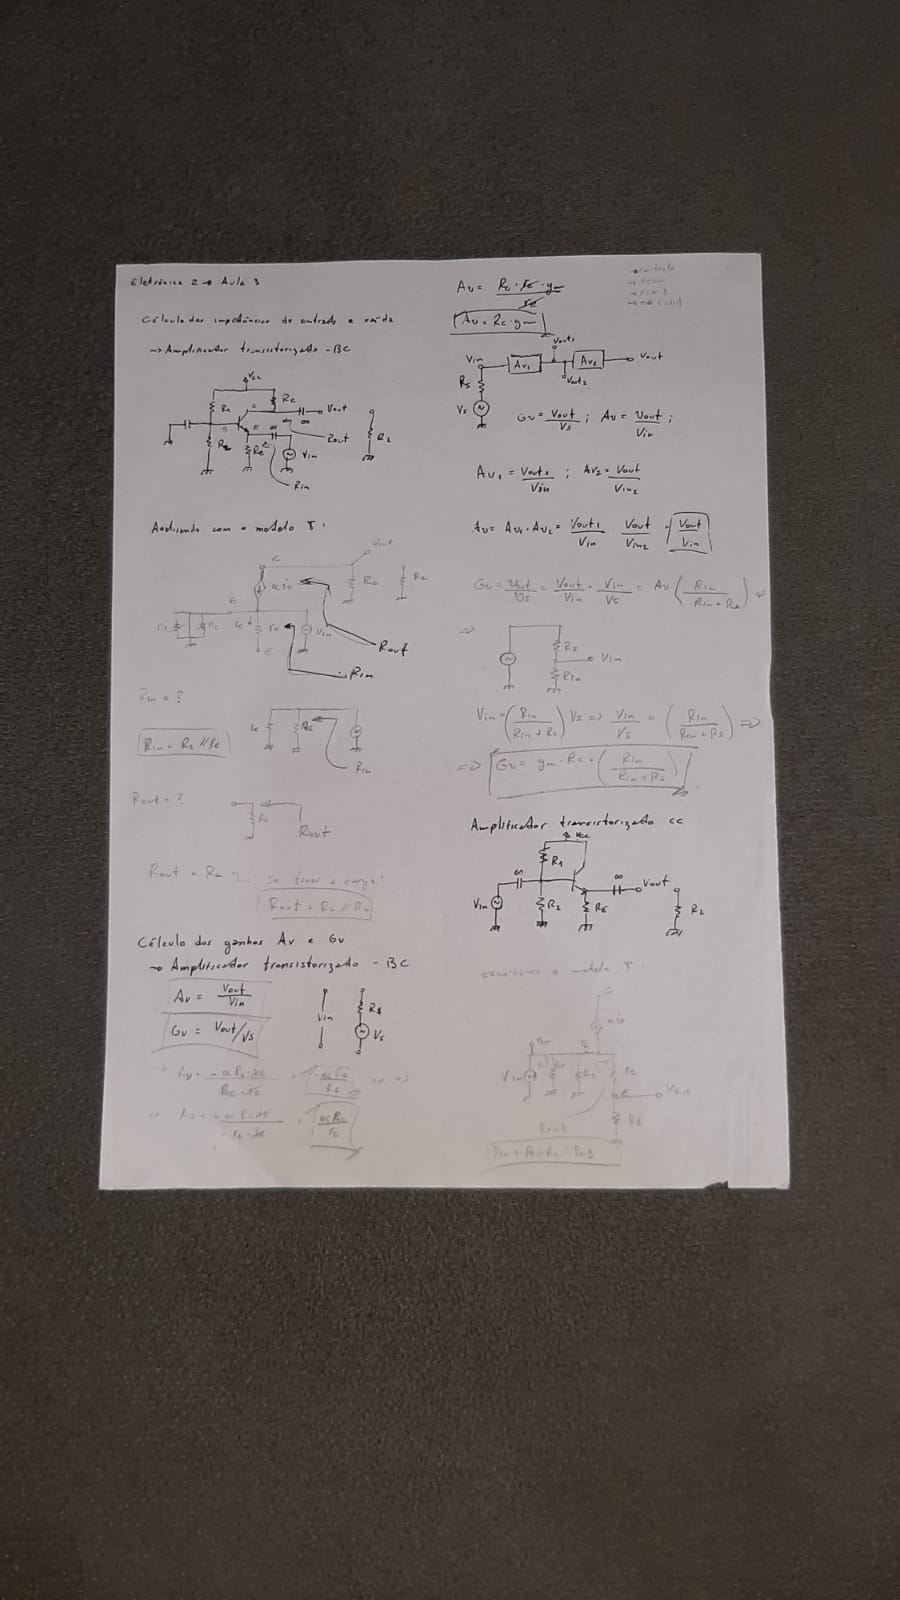 Eletrônica 2 → Aula 3
Cálculo das impedâncias de entrada e saída
→ Amplificador transistorizado - BC
Vcc
R1
Rc
C
Vout
B
E
∞
Rout
RL
RE
Vin
Rin
Analisando com o modelo T:
C
Vout
αie
RL
B
ie
re
Vin
E
Rout
Rin
Rin = ?
Rin = RE // re
re
RE
Rin
Rout = ?
Rc
Rout
Rout = Rc
se tiver a carga:
Rout = Rc // RL
Cálculo dos ganhos Av e Gv
→ Amplificador transistorizado - BC
Av = Vout/Vin
Gv = Vout/Vs
Vin
Rs
Vs
Av = Rc · re · gm / re
Av = Rc · gm
→ entrada
Vin
Av1
Vout1
Av2
Vout
Vout2
Rs
Vs
Gv = Vout/Vs ; Av = Vout/Vin ;
Av1 = Vout1/Vin ; Av2 = Vout/Vin2
Av = Av1 · Av2 = Vout1/Vin · Vout/Vin2 = Vout/Vin
Gv = Vout/Vs = Vout/Vin · Vin/Vs = Av (Rin/(Rin + Rs)) ⇒
⇒
Rs
Vin
Rin
Vin = (Rin/(Rin + Rs)) Vs ⇒ Vin/Vs = (Rin/(Rin + Rs)) ⇒
⇒ Gv = gm · Rc · (Rin/(Rin + Rs))
Amplificador transistorizado CC
Vcc
R1
∞
Vin
R2
RE
∞
Vout
RL
modelo T:
C
αie
B
Vin
re
Vout
RE
RinB
Rin = R1 // R2 // RinB